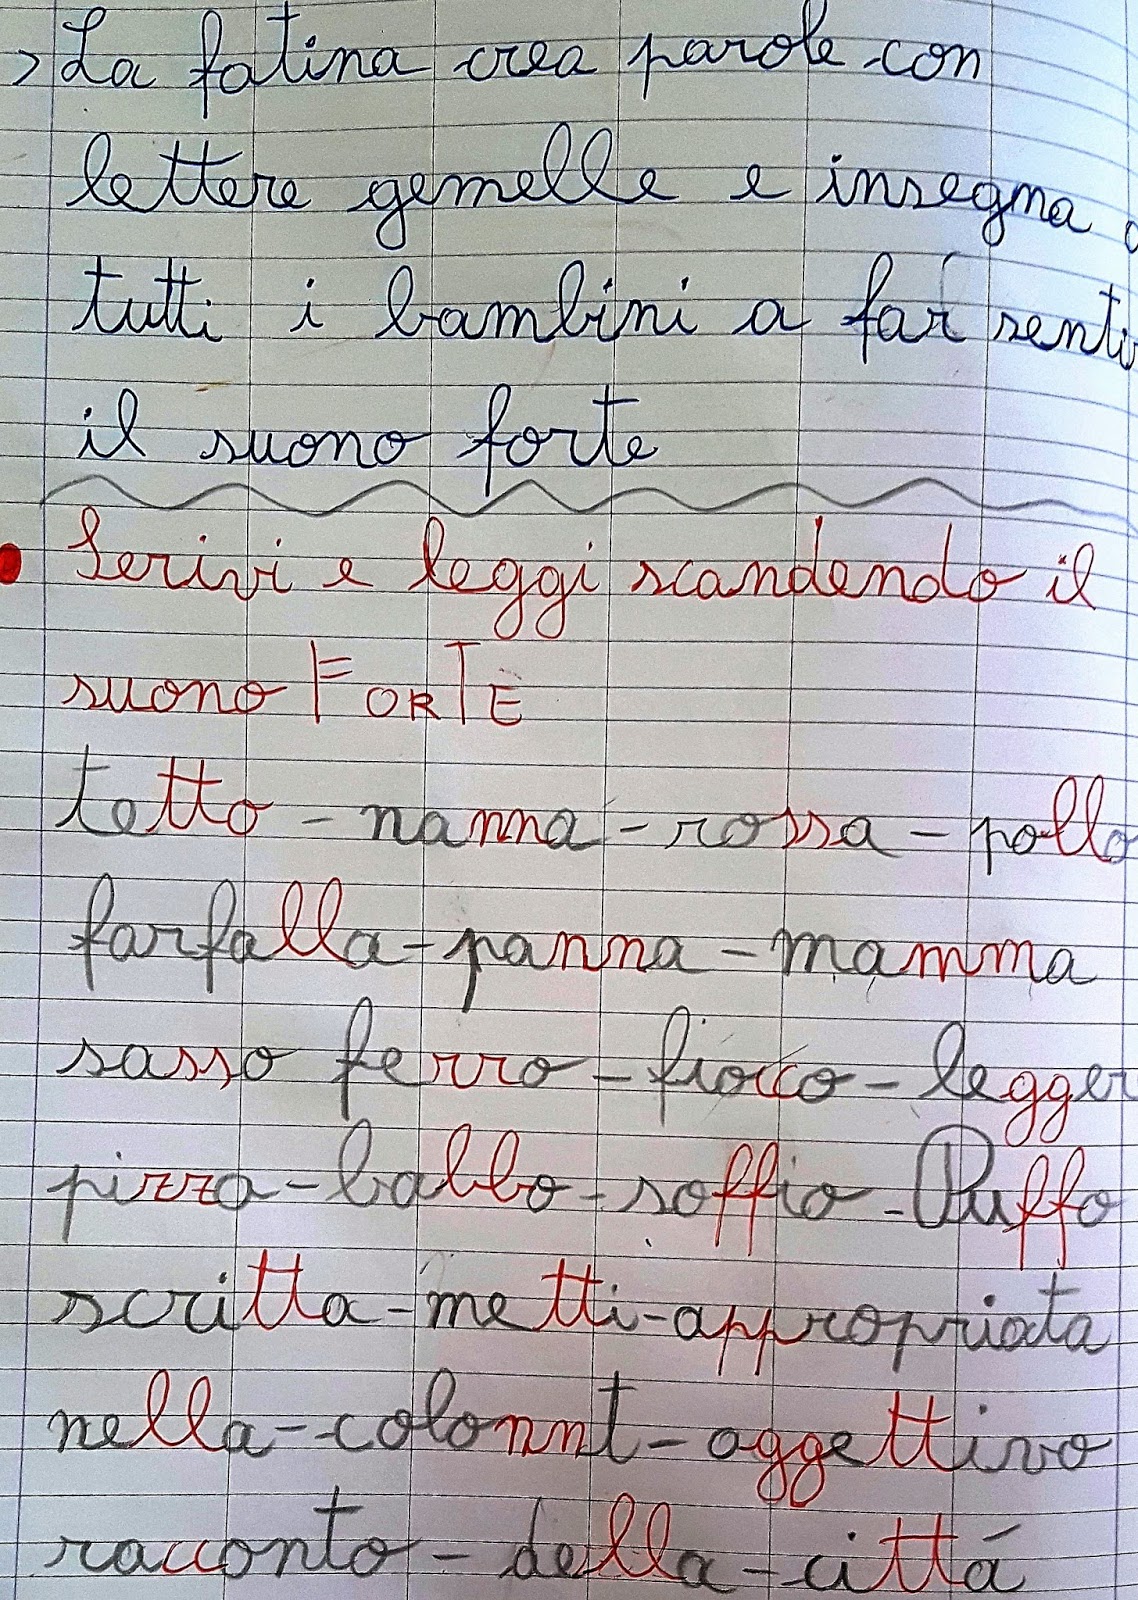 > La fatina crea parole con
lettere gemelle e insegna
tutti i bambini a far senti
il suono forte
Scrivi e leggi scandendo il
suono FORTE
tetto - nanna - rossa - pollo
farfalla - panna - mamma
sasso ferro - fiocco - legger
pizza - babbo - soffio - Puffo
scritta - metti - appropriata
nella - colonnt - oggettivo
racconto - della - cittá